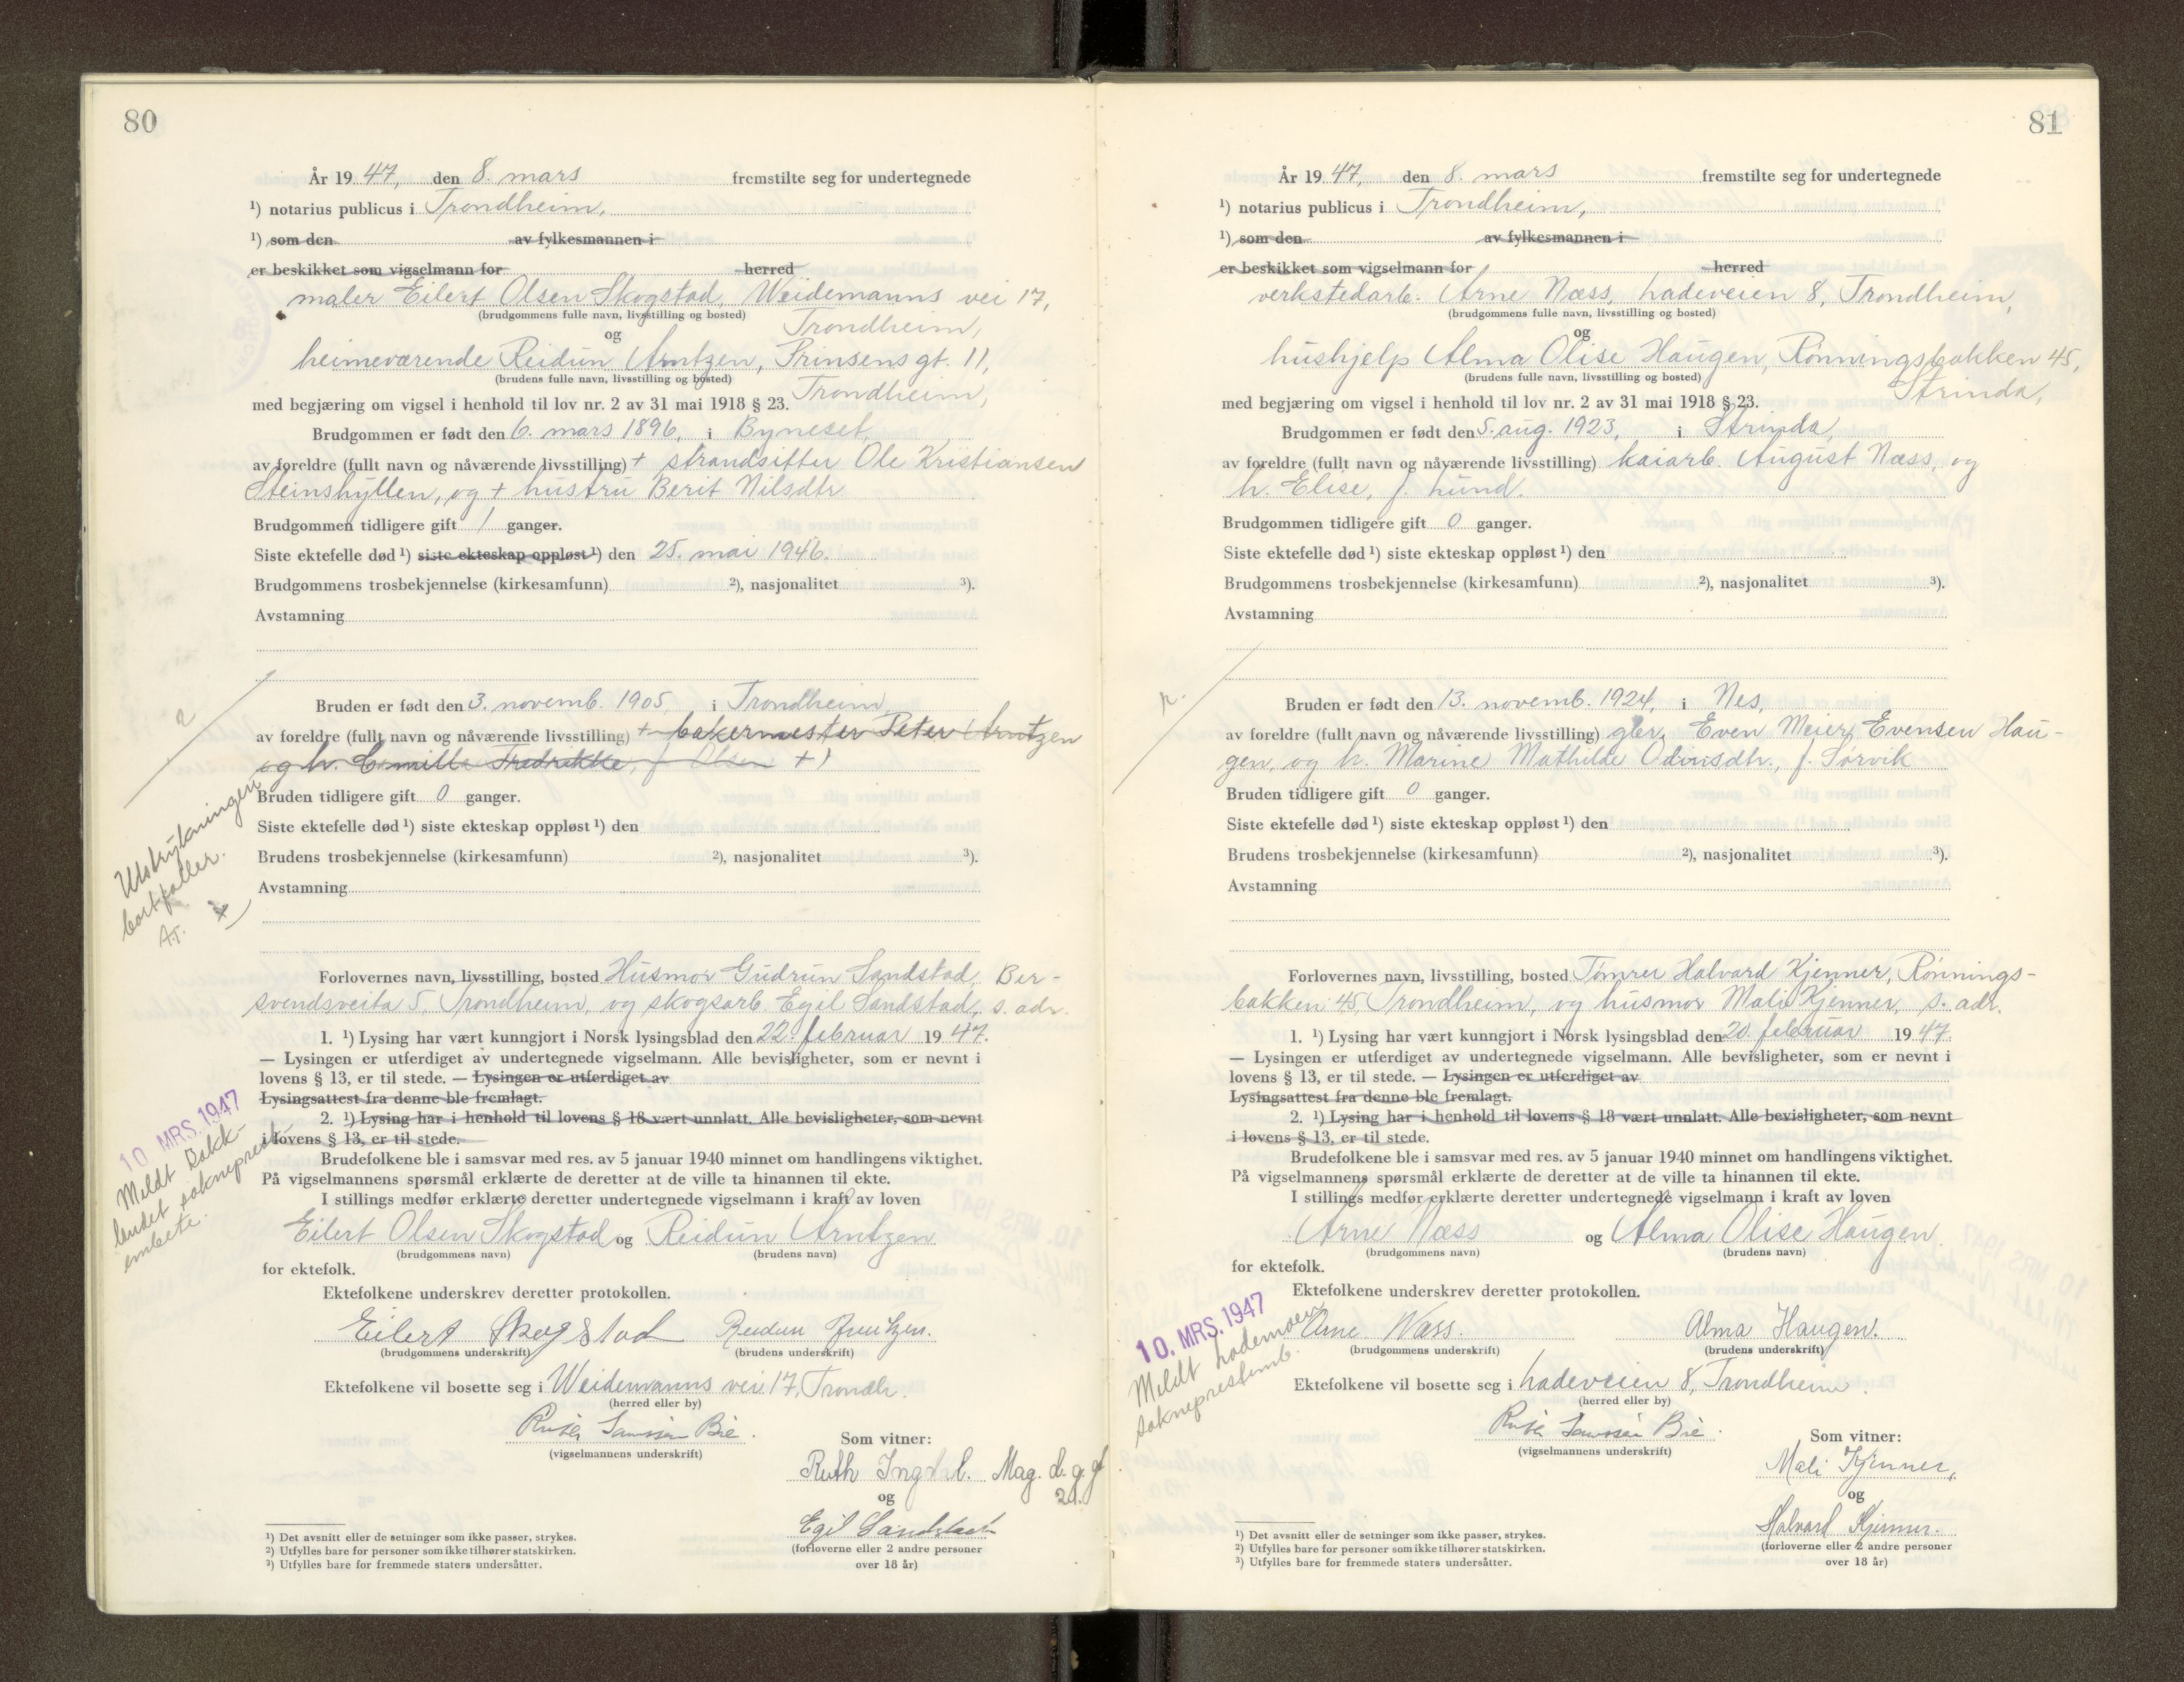 80
År 19 47, den 8. mars fremstilte seg for undertegnede
¹) notarius publicus i Trondheim,
¹) som den av fylkesmannen i
er beskikket som vigselmann for herred
maler Eilert Olsen Skogstad, Weidemanns vei 17,
(brudgommens fulle navn, livsstilling og bosted) Trondheim,
og
heimeværende Reidun Arntzen, Prinsens gt. 11,
(brudens fulle navn, livsstilling og bosted)
med begjæring om vigsel i henhold til lov nr. 2 av 31 mai 1918 § 23. Trondheim,
Brudgommen er født den 6. mars 1896, i Byneset,
av foreldre (fullt navn og nåværende livsstilling) + strandsitter Ole Kristiansen
Steinshyllen, og + hustru Berit Nilsdtr
Brudgommen tidligere gift 1 ganger.
Siste ektefelle død ¹) siste ekteskap oppløst ¹) den 25. mai 1946.
Brudgommens trosbekjennelse (kirkesamfunn) ²), nasjonalitet ³).
Avstamning
2
Bruden er født den 3. novemb. 1905, i Trondheim,
av foreldre (fullt navn og nåværende livsstilling) + bakermester Peter Arntzen
og h. Camilla Fredrikke, f. Olsen +)
Bruden tidligere gift 0 ganger.
Siste ektefelle død ¹) siste ekteskap oppløst ¹) den
Brudens trosbekjennelse (kirkesamfunn) ²), nasjonalitet ³).
Avstamning
Utstrykningen
bortfaller.
A.T.
+)
Forlovernes navn, livsstilling, bosted Husmor Gudrun Sandstad, Ber-
svendsveita 5, Trondheim, og skogsarb. Egil Sandstad, s. adr.
1. ¹) Lysing har vært kunngjort i Norsk lysingsblad den 22. februar 19 47.
— Lysingen er utferdiget av undertegnede vigselmann. Alle bevisligheter, som er nevnt i
lovens § 13, er til stede. — Lysingen er utferdiget av
Lysingsattest fra denne ble fremlagt.
2. ¹) Lysing har i henhold til lovens § 18 vært unnlatt. Alle bevisligheter, som nevnt
i lovens § 13, er til stede.
10 MRS. 1947
Meldt Bakk-
landet sokneprest-
embete.
Brudefolkene ble i samsvar med res. av 5 januar 1940 minnet om handlingens viktighet.
På vigselmannens spørsmål erklærte de deretter at de ville ta hinannen til ekte.
I stillings medfør erklærte deretter undertegnede vigselmann i kraft av loven
Eilert Olsen Skogstad og Reidun Arntzen
(brudgommens navn) (brudens navn)
for ektefolk.
Ektefolkene underskrev deretter protokollen.
Eilert Skogstad Reidun Arntzen.
(brudgommens underskrift) (brudens underskrift)
Ektefolkene vil bosette seg i Weidemanns vei 17, Trondh.
(herred eller by)
(vigselmannens underskrift)
Som vitner:
Ruth Ingdal. Mag. d. g. gt
21.
og
Egil Sandstad
(forloverne eller 2 andre personer
over 18 år)
¹) Det avsnitt eller de setninger som ikke passer, strykes.
²) Utfylles bare for personer som ikke tilhører statskirken.
³) Utfylles bare for fremmede staters undersåtter.
81
År 19 47, den 8. mars fremstilte seg for undertegnede
¹) notarius publicus i Trondheim,
¹) som den av fylkesmannen i
er beskikket som vigselmann for herred
verkstedarb. Arne Næss, Ladeveien 8, Trondheim,
(brudgommens fulle navn, livsstilling og bosted)
og
hushjelp Alma Olise Haugen, Rønningsbakken 45,
(brudens fulle navn, livsstilling og bosted) Strinda,
med begjæring om vigsel i henhold til lov nr. 2 av 31 mai 1918 § 23.
Brudgommen er født den 5. aug. 1923, i Strinda,
av foreldre (fullt navn og nåværende livsstilling) kaiarb. August Næss, og
h. Elise, f. Lund.
Brudgommen tidligere gift 0 ganger.
Siste ektefelle død ¹) siste ekteskap oppløst ¹) den
Brudgommens trosbekjennelse (kirkesamfunn) ²), nasjonalitet ³).
Avstamning
Bruden er født den 13. novemb. 1924, i Nes,
av foreldre (fullt navn og nåværende livsstilling) gbr. Even Meier Evensen Hau-
gen, og h. Marine Mathilde Odinsdtr., f. Sørvik
Bruden tidligere gift 0 ganger.
Siste ektefelle død ¹) siste ekteskap oppløst ¹) den
Brudens trosbekjennelse (kirkesamfunn) ²), nasjonalitet ³).
Avstamning
Forlovernes navn, livsstilling, bosted Tømrer Halvard Kjenner, Rønnings-
bakken 45, Trondheim, og husmor Mali Kjenner, s. adr.
1. ¹) Lysing har vært kunngjort i Norsk lysingsblad den 20 februar 19 47.
— Lysingen er utferdiget av undertegnede vigselmann. Alle bevisligheter, som er nevnt i
lovens § 13, er til stede. — Lysingen er utferdiget av
Lysingsattest fra denne ble fremlagt.
2. ¹) Lysing har i henhold til lovens § 18 vært unnlatt. Alle bevisligheter, som nevnt
i lovens § 13, er til stede.
Brudefolkene ble i samsvar med res. av 5 januar 1940 minnet om handlingens viktighet.
På vigselmannens spørsmål erklærte de deretter at de ville ta hinannen til ekte.
I stillings medfør erklærte deretter undertegnede vigselmann i kraft av loven
Arne Næss og Alma Olise Haugen
(brudgommens navn) (brudens navn)
for ektefolk.
Ektefolkene underskrev deretter protokollen.
10. MRS. 1947
Meldt Lademoen
sokneprestemb.
Arne Næss. Alma Haugen.
(brudgommens underskrift) (brudens underskrift)
Ektefolkene vil bosette seg i Ladeveien 8, Trondheim.
(herred eller by)
(vigselmannens underskrift)
Som vitner:
Mali Kjenner,
og
Halvard Kjenner.
(forloverne eller 2 andre personer
over 18 år)
¹) Det avsnitt eller de setninger som ikke passer, strykes.
²) Utfylles bare for personer som ikke tilhører statskirken.
³) Utfylles bare for fremmede staters undersåtter.